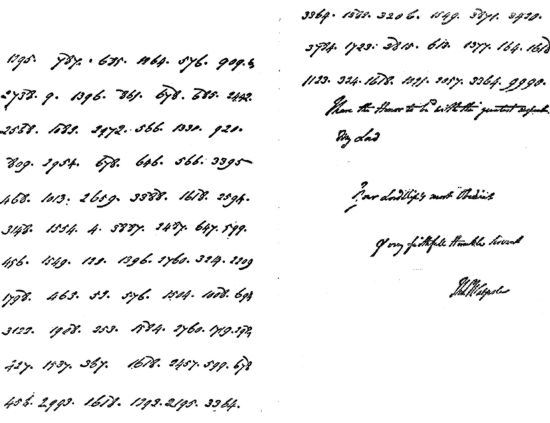 1395. 787. 635. 1064. 576. 909.
2738. 9. 1396. 861. 678. 685. 2442.
2568. 1683. 2972. 566. 1330. 920.
809. 2954. 678. 646. 566. 3395
468. 1013. 2659. 3388. 1618. 2594.
3148. 1554. 4. 3887. 2487. 647. 599.
456. 1549. 120. 1396. 2760. 324. 2209
1798. 463. 53. 576. 1504. 1008.
3122. 1908. 253. 1584. 2760. 1719.
427. 1537. 367. 1618. 2457. 599. 678
456. 2993. 1618. 1393. 2195. 3364.
3364. 1588. 3206. 1549. 3871. 2420.
3784. 1723. 2815. 613. 1377. 164. 1618
1123. 324. 1618. 1091. 2057. 3364. 9990.
I have the Honor to be with the greatest
My Lord
Your Lordship's most Obedient
faithfull Humble Servant